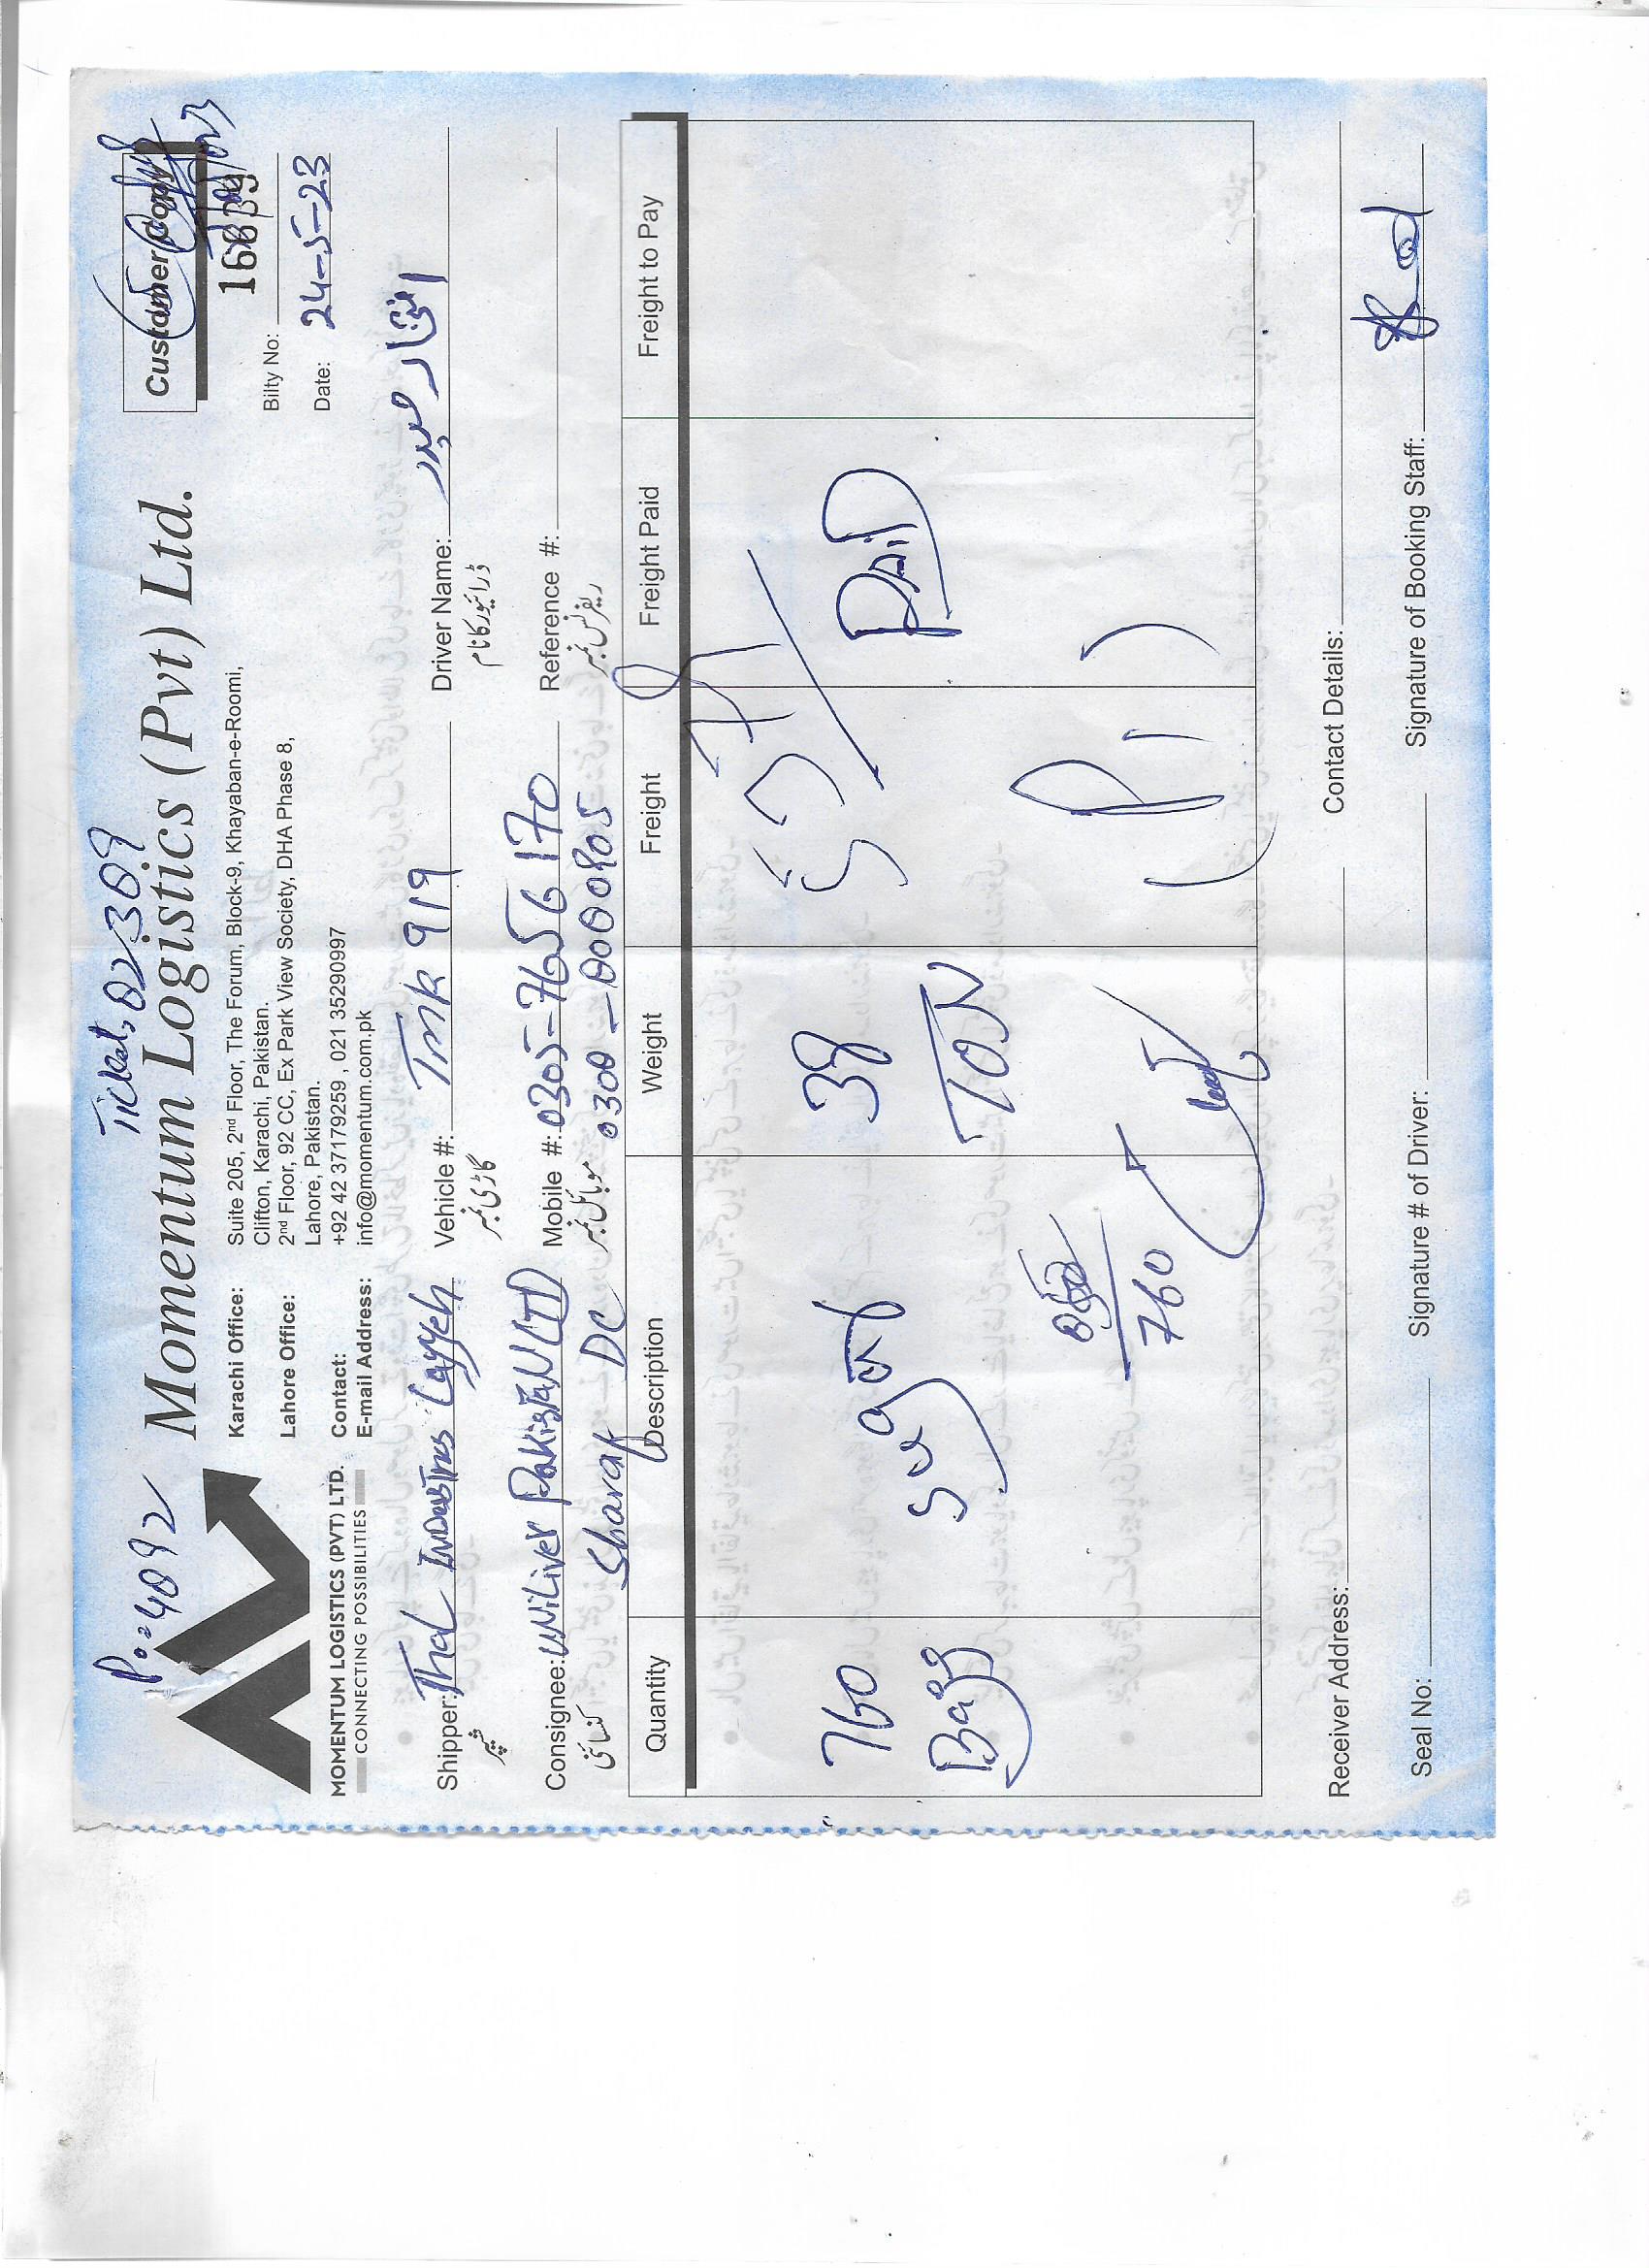 P.o=4092
Ticket, 82309
Customer Copy
Momentum Logistics (Pvt) Ltd.
MOMENTUM LOGISTICS (PVT) LTD.
CONNECTING POSSIBILITIES
Karachi Office: Suite 205, 2nd Floor, The Forum, Block-9, Khayaban-e-Roomi,
Clifton, Karachi, Pakistan.
Lahore Office: 2nd Floor, 92 CC, Ex Park View Society, DHA Phase 8,
Lahore, Pakistan.
Contact: +92 42 37179259 , 021 35290997
E-mail Address: info@momentum.com.pk
Bilty No:
Date: 24-5-23
Shipper: Thal Industries Layyah
شپر
Vehicle #: TMK 919
گاڑی نمبر
Driver Name: افتخار حیدر
ڈرائیور کا نام
Consignee: UNiLiver PakisTaN LTD
کنسائنی
Sharaf DC
Mobile #: 0305-7656170
موبائل نمبر
0300-
Reference #:
ریفرنس نمبر
Quantity Description Weight Freight Freight Paid Freight to Pay
760 Sugar 38 PaiD
Bags TON
760
Receiver Address: Contact Details:
Seal No: Signature # of Driver: Signature of Booking Staff: